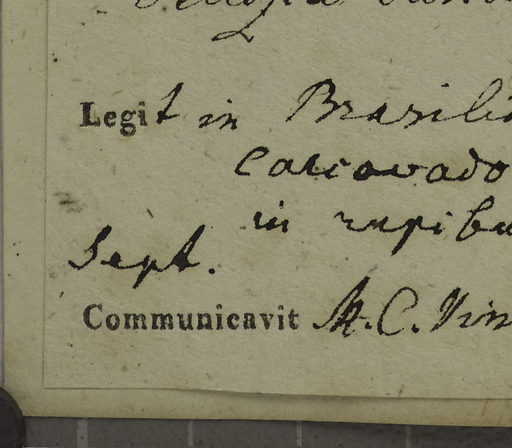 Legit in Brasili
Corcovado
in rupibu
Sept.
Communicavit M. C. Vin